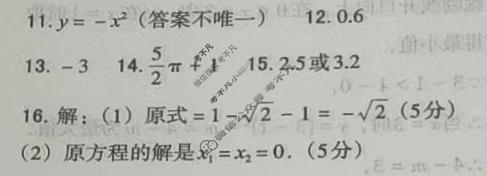 11. y = －x²（答案不唯一） 12. 0.6
13. －3 14. 5/2 π + 1 15. 2.5或3.2
16. 解：（1）原式 = 1－√2－1 = －√2（5分）
（2）原方程的解是x₁ = x₂ = 0.（5分）